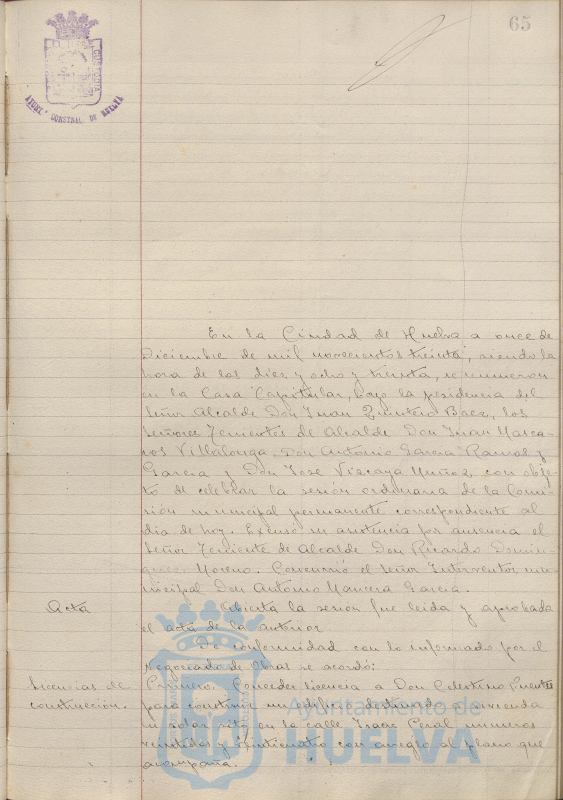 65
AYUNT. CONSTNAL. DE HUELVA
En la Ciudad de Huelva a once de
Diciembre de mil novecientos treinta, siendo la
hora de las diez y ocho y treinta, se reunieron
en la Casa Capitular, bajo la presidencia del
Señor Alcalde Don Juan Quintero Baez, los
Señores Tenientes de Alcalde Don Juan Masca-
ros Villalonga, Don Antonio Garcia Ramos y
Garcia y Don José Vizcaya Muñoz, con obje-
to de celebrar la sesión ordinaria de la Comi-
sión municipal permanente correspondiente al
día de hoy. Excusó su asistencia por ausencia el
Señor Teniente de Alcalde Don Ricardo Domin-
guez Moreno. Concurrió el señor Interventor mu-
nicipal Don Antonio Mancera Garcia.
Acta Abierta la sesión fue leida y aprobada
el acta de la anterior
De conformidad con lo informado por el
Negociado de Obras se acordó:
Licencias de Primero. Conceder licencia a Don Celestino Puentes
construcción. para construir un edificio destinado a vivienda
en solar sito en la calle Isaac Peral numeros
veintidos y veinticuatro con arreglo al plano que
acompaña.
Ayuntamiento de
HUELVA